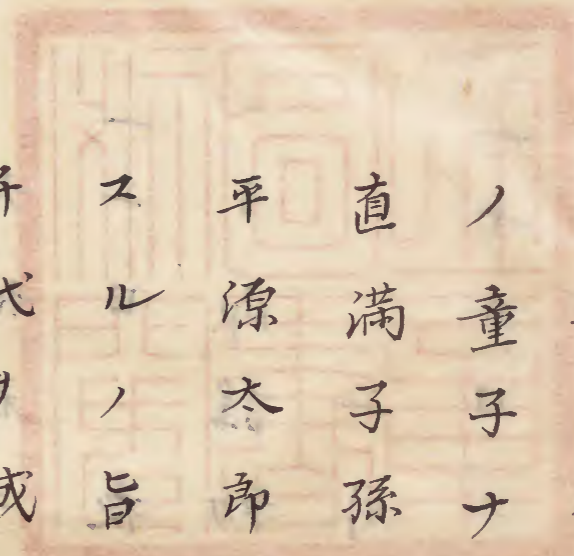 ノ童子ナ
直満子孫
平源太郎
スルノ旨